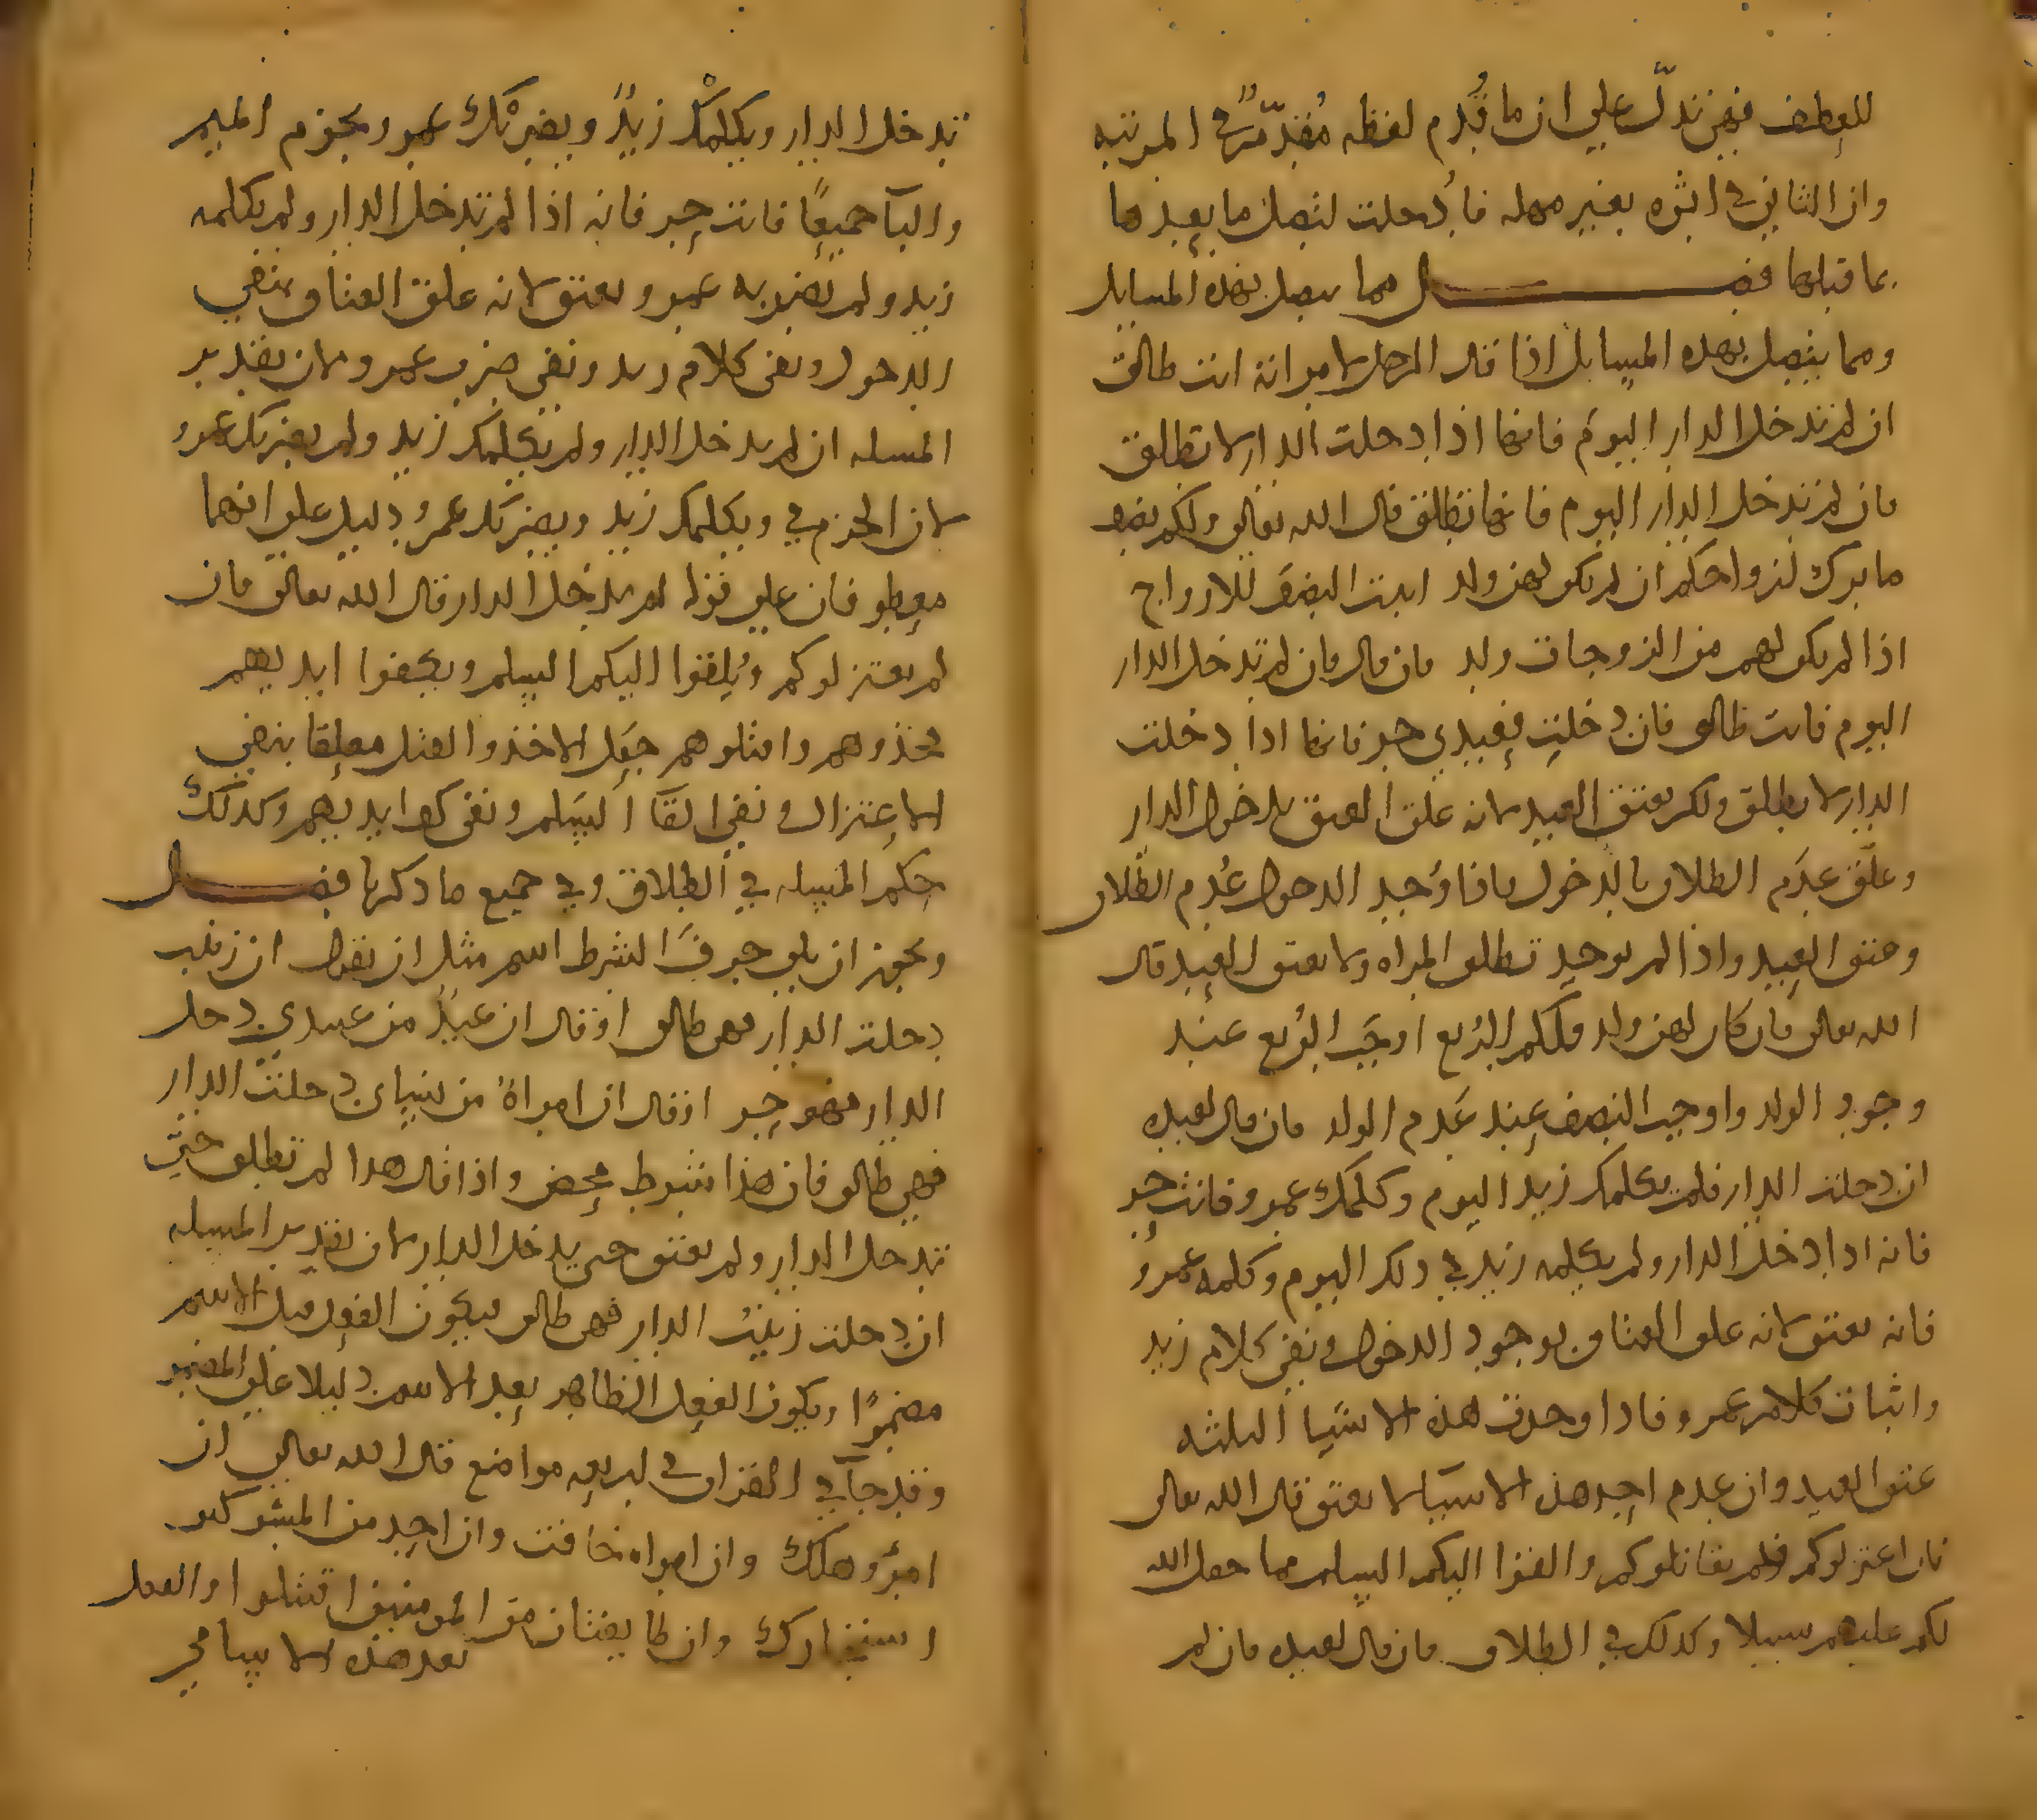 للعطف فهي تدل على ان ما قُدم لفظه مُقدّمٌ في المرتبه
وان الثاني في اثره بغير مهله فأدخلت لتصل ما بعدها
بما قبلها فصل مما يتصل بهذه المسايل
ومما يتصل بهذه المسايل اذا قال الرجل لامراته انت طالق
ان لم تدخل الدار اليوم فانها اذا دخلت الدار لا تطلق
فان لم تدخل الدار اليوم فانها تطلق قال الله تعالى ولكم نصف
ما ترك ازواجكم ان لم يكن لهن ولد اثبت النصف للازواج
اذا لم يكن لهم من الزوجات ولد فان قال فان لم تدخل الدار
اليوم فانت طالق فان دخلتِ فعبدي حر فانها اذا دخلت
الدار لا تطلق ولكن يعتق العبد لانه علق العتق بدخول الدار
وعلّق عدَم الطلاق بالدخول فاذا وُجد الدخول عُدم الطلاق
وعتق العبد واذا لم يوجد تطلق المراه ولا يعتق العبد قال
الله تعالى فان كان لهن ولد فلكم الرُبع اوجَب الرُبع عند
وجود الولد واوجب النصف عند عَدم الولد فان قال لعبده
ان دخلت الدار فلم يكلمك زيد اليوم وكلمك عمرو فانت حر
فانه اذا دخل الدار ولم يكلمه زيد في ذلك اليوم وكلمه عمرو
فانه يعتق لانه علق العتاق بوجود الدخول ونفي كلام زيد
واثبات كلام عمرو فاذا وجدت هذه الاشيا الثلثه
عتق العبد وان عدم احد هذه الاشيا لا يعتق قال الله تعالى
فان اعتزلوكم فلم يقاتلوكم والقوا اليكم السلم فما جعل الله
لكم عليهم سبيلا وكذلك في الطلاق فان قال لعبده فان لم
تدخل الدار ويكلمْك زيدٌ ويضربْك عمرو بجزم الميم
والبآ جميعًا فانت حر فانه اذا لم تدخل الدار ولم يكلمه
زيد ولم يضربه عمرو يعتق لانه علق العتاق بنفي
الدخول ونفي كلام زيد ونفي ضرب عمرو لان تقدير
المسله ان لم تدخل الدار ولم يكلمك زيد ولم يضربك عمرو
لان الجزم في ويكلمك زيد ويضربك عمرو دليل على انهما
قال الله تعالى فان
لم يعتزلوكم ويُلقوا اليكم السلم ويكفوا ايديهم
فخذوهم واقتلوهم جعَل الاخذ والقتل معلقا بنفي
الاعتزال ونفي القآ السَلم ونفي كف ايديهم وكذلك
حكم المسله في الطلاق وفي جميع ما ذكرنا فصل
ويجوز ان يلي حرفَ الشرط اسم مثل ان تقول ان زينب
دخلت الدار فهي طالق او قال ان عبدٌ من عبيدي دخل
الدار فهو حر او قال ان امراةٌ من نسآي دخلتْ الدار
فهي طالق فان هذا شرط محض واذا قال هذا لم تطلق حتى
تدخل الدار ولم يعتق حتى يدخل الدار لان تقدير المسله
ان دخلت زينبُ الدار فهي طالق فيكون الفعل قبل الاسم
مضمرًا ويكون الفعل الظاهر بعد الاسم دليلا على المضمر
وقد جآ في القران في اربعه مواضع قال الله تعالى ان
امرؤ هلك وان امراه خافت وان احد من المشركين
استجارك وان طايفتان من المومنين اقتتلوا والفعل
بعد هذه الاسما في